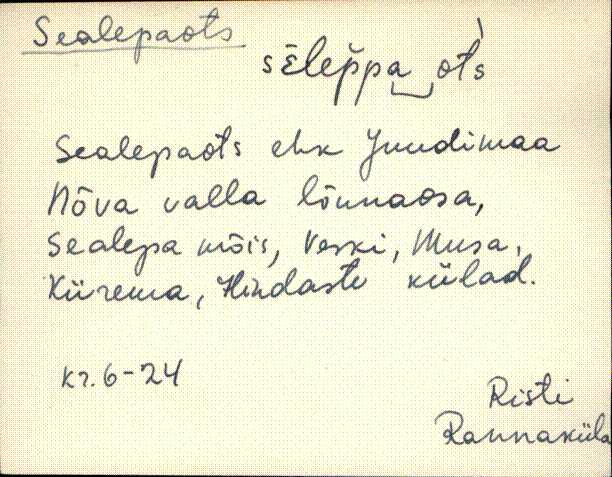 Sealepaots
sēlep̆pa‿ot̀s
Sealepaots ehk Juudimaa
Nõva valla lõunaosa,
Sealepa mõis, Veski, Musa,
Kürema, Hindaste külad.
Kr. 6-24
Risti
Rannaküla